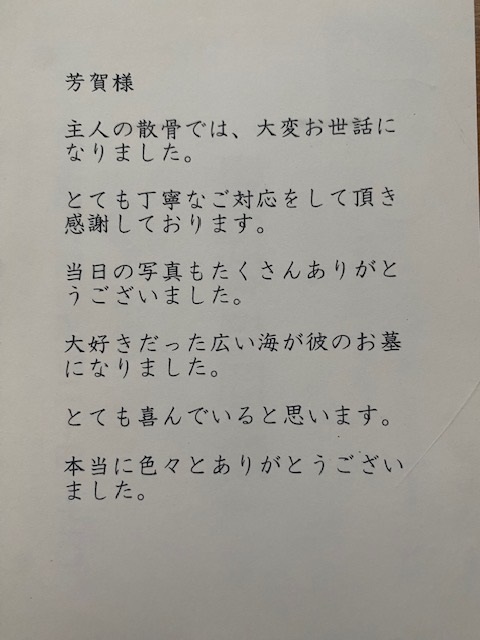 芳賀様
主人の散骨では、大変お世話に
なりました。
とても丁寧なご対応をして頂き
感謝しております。
当日の写真もたくさんありがと
うございました。
大好きだった広い海が彼のお墓
になりました。
とても喜んでいると思います。
本当に色々とありがとうござい
ました。